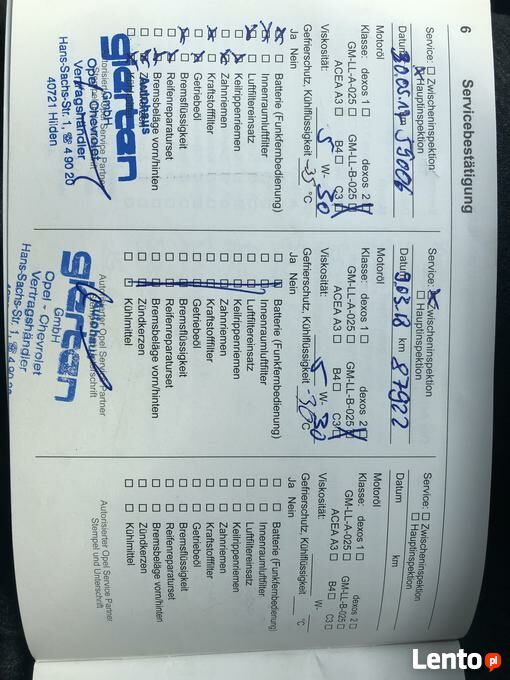 6
Servicebestätigung
Service: Zwischeninspektion
Hauptinspektion
Datum 30.05.17 55006
Motoröl
Klasse: dexos 1 dexos 2
GM-LL-A-025 GM-LL-B-025
ACEA A3 B4 C3
Viskosität: 5 W- 30
Gefrierschutz, Kühlflüssigkeit -35 °C
Ja Nein
Batterie (Funkfernbedienung)
Innenraumluftfilter
Luftfiltereinsatz
Keilrippenriemen
Zahnriemen
Kraftstofffilter
Getriebeöl
Bremsflüssigkeit
Reifenreparaturset
Bremsbeläge vorn/hinten
Autorisierter Opel Service Partner
Autohaus
glartan
GmbH
Opel - Chevrolet
Vertragshändler
Hans-Sachs-Str. 1, ☏ 4 90 20
40721 Hilden
Service: Zwischeninspektion
Hauptinspektion
Datum 9.03.18 km 87922
Motoröl
Klasse: dexos 1 dexos 2
GM-LL-A-025 GM-LL-B-025
ACEA A3 B4 C3
Viskosität: 5 W- 30
Gefrierschutz, Kühlflüssigkeit -30 °C
Ja Nein
Batterie (Funkfernbedienung)
Innenraumluftfilter
Luftfiltereinsatz
Keilrippenriemen
Zahnriemen
Kraftstofffilter
Getriebeöl
Bremsflüssigkeit
Reifenreparaturset
Bremsbeläge vorn/hinten
Zündkerzen
Kühlmittel
Autorisierter Opel Service Partner
Autohaus
glartan
GmbH
Opel - Chevrolet
Vertragshändler
Hans-Sachs-Str. 1, ☏ 4 90 20
Service: Zwischeninspektion
Hauptinspektion
Datum km
Motoröl
Klasse: dexos 1 dexos 2
GM-LL-A-025 GM-LL-B-025
ACEA A3 B4 C3
Viskosität: W-
Gefrierschutz, Kühlflüssigkeit °C
Ja Nein
Batterie (Funkfernbedienung)
Innenraumluftfilter
Luftfiltereinsatz
Keilrippenriemen
Zahnriemen
Kraftstofffilter
Getriebeöl
Bremsflüssigkeit
Reifenreparaturset
Bremsbeläge vorn/hinten
Zündkerzen
Kühlmittel
Autorisierter Opel Service Partner
Stempel und Unterschrift
Lento.pl